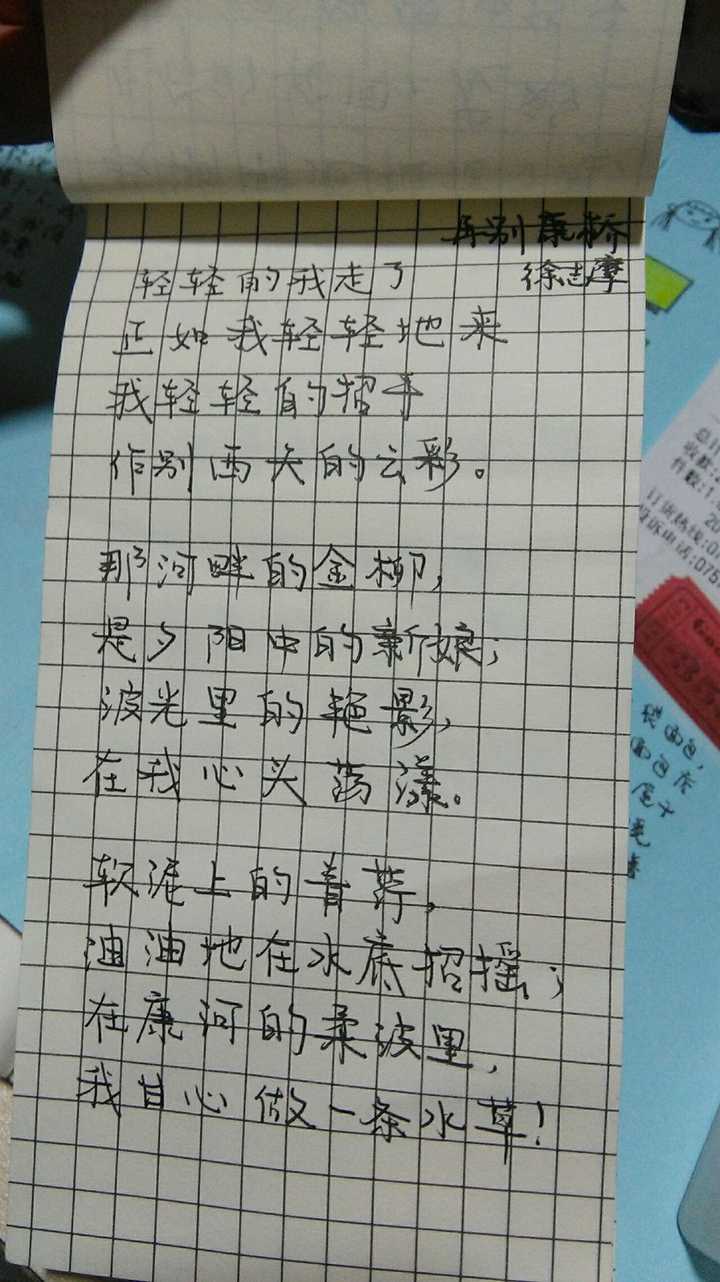 再别康桥
徐志摩
轻轻的我走了
正如我轻轻地来
我轻轻的招手
作别西天的云彩。
那河畔的金柳,
是夕阳中的新娘;
波光里的艳影,
在我心头荡漾。
软泥上的青荇,
油油地在水底招摇;
在康河的柔波里,
我甘心做一条水草!
总计
件数:1
订货热线:0
投诉电话:075
面包